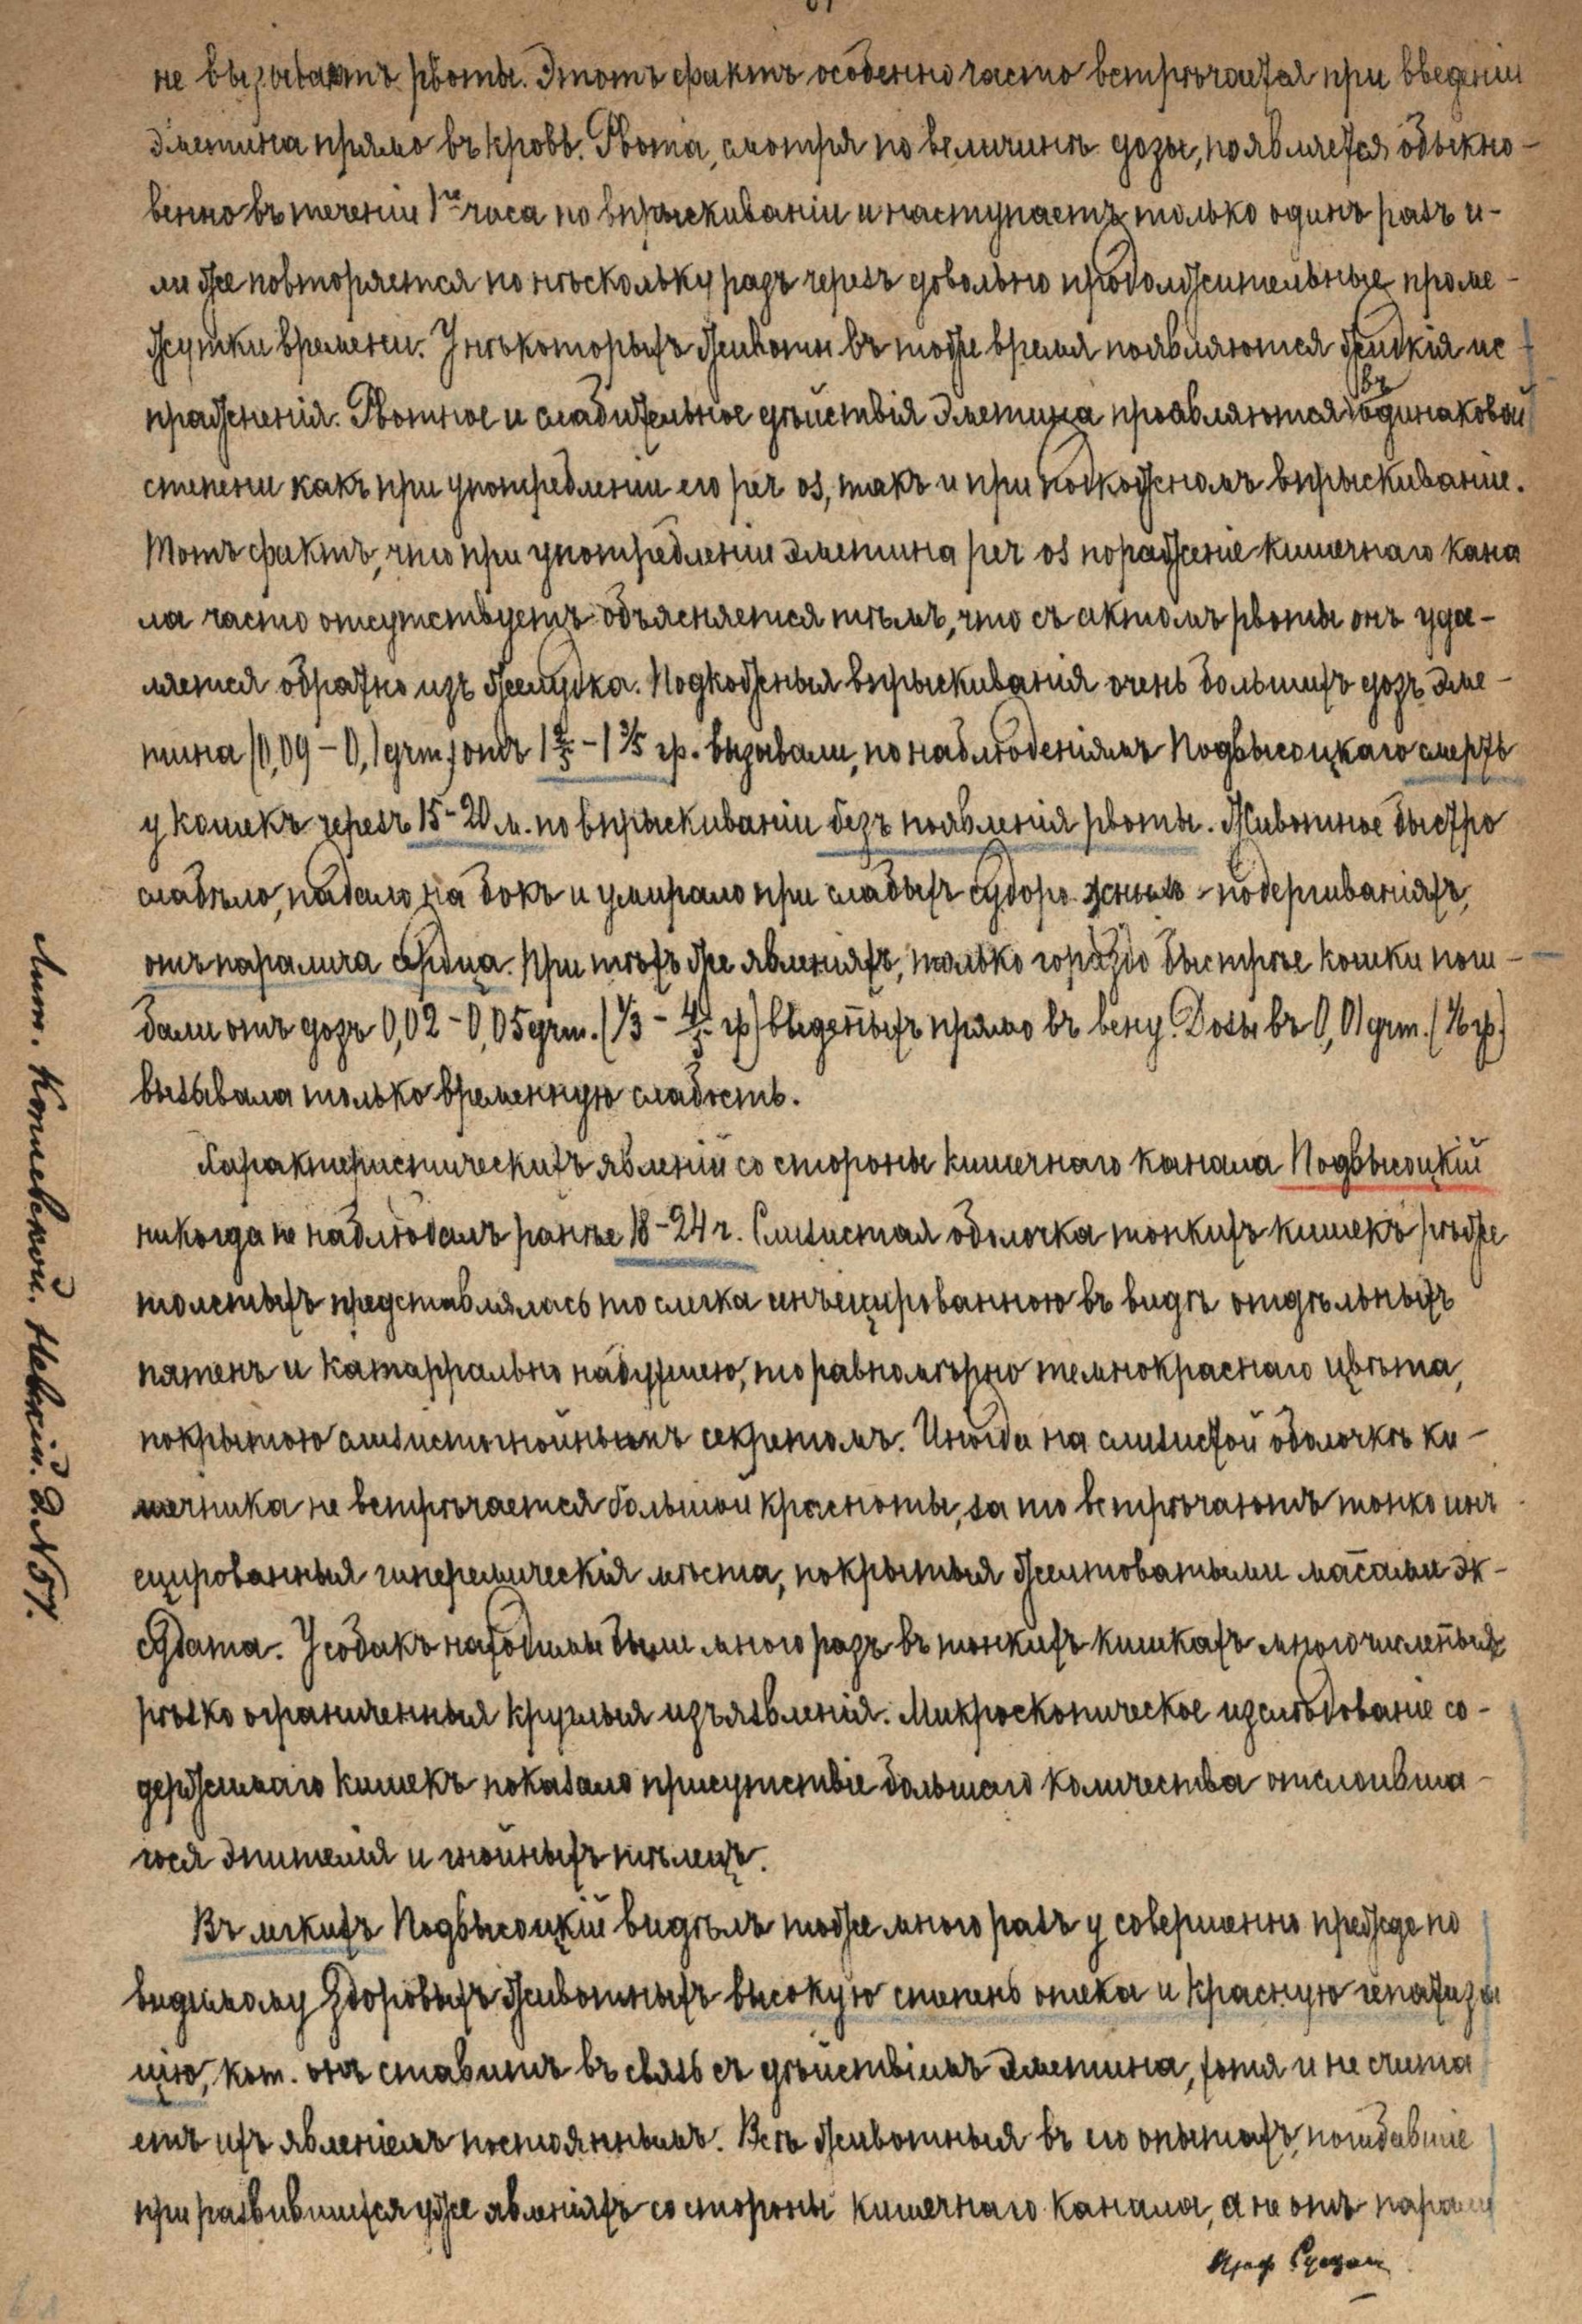 не вызываетъ рвоты. Этотъ фактъ особенно часто встрѣчается при введеніи
эметина прямо въ кровь. Рвота, смотря по величинѣ дозы, появляется обыкно-
венно въ теченіи 1го часа по впрыскиваніи и наступаетъ только одинъ разъ и-
ли же повторяется по нѣскольку разъ черезъ довольно продолжительные проме-
жутки времени. У нѣкоторыхъ животн. въ тоже время появляются жидкія ис-
пражненія. Рвотное и слабительное дѣйствія эметина проявляются въ одинаковой
степени какъ при употребленіи его per os, такъ и при подкожномъ впрыскиваніе.
Тотъ фактъ, что при употребленіе эметина per os пораженіе кишечнаго кана
ла часто отсутствуетъ объясняется тѣмъ, что съ актомъ рвоты онъ уда-
ляется обратно изъ желудка. Подкожныя впрыскиванія очень большихъ дозъ эме-
тина (0,09 - 0,1 grm.) отъ 1 2/5 - 1 3/5 гр. вызывали, по наблюденіямъ Подвысоцкаго смерть
у кошекъ черезъ 15 - 20 м. по впрыскиваніи безъ появленія рвоты. Животное быстро
слабѣло, падало на бокъ и умирало при слабыхъ судорожныхъ подергиваніяхъ,
отъ паралича сердца. При тѣхъ же явленіяхъ, только гораздо быстрѣе кошки поги-
бали отъ дозъ 0,02 - 0,05 grm. (1/3 - 4/5 гр) введенныхъ прямо въ вену. Дозы въ 0,01 grm. (1/6 гр.)
вызывала только временную слабость.
Характеристическихъ явленій со стороны кишечнаго канала Подвысоцкій
никогда не наблюдалъ ранѣе 18 - 24 ч. Слизистая оболочка тонкихъ кишекъ рѣже
толстыхъ представлялась то слегка инъецированною въ видѣ отдѣльныхъ
пятенъ и катаррально набухшею, то равномѣрно темнокраснаго цвѣта,
покрытою слизистогнойнымъ секретомъ. Иногда на слизистой оболочкѣ ки-
шечника не встрѣчается большой красноты, за то встрѣчаютъ тонко инъ
ецированныя гиперемическія мѣста, покрытыя желтоватыми массами эк-
судата. У собакъ находимы были много разъ въ тонкихъ кишкахъ многочисленныя
рѣзко ограниченныя круглыя изъязвленія. Микроскопическое изслѣдованіе со-
держимаго кишекъ показало присутствіе большаго количества отслоивша-
гося эпителія и гнойныхъ тѣлецъ.
Въ легкихъ Подвысоцкій видѣлъ тоже много разъ у совершенно прежде по
видимому здоровыхъ животныхъ высокую степень отека и красную гепатиза
цію, кот. онъ ставитъ въ связь съ дѣйствіемъ эметина, хотя и не счита
етъ ихъ явленіемъ постояннымъ. Всѣ животныя въ его опытахъ, погибавшіе
при развившихся уже явленіяхъ со стороны кишечнаго канала, а не отъ парали
Проф.
Лит. Невскій. Д. № 57.